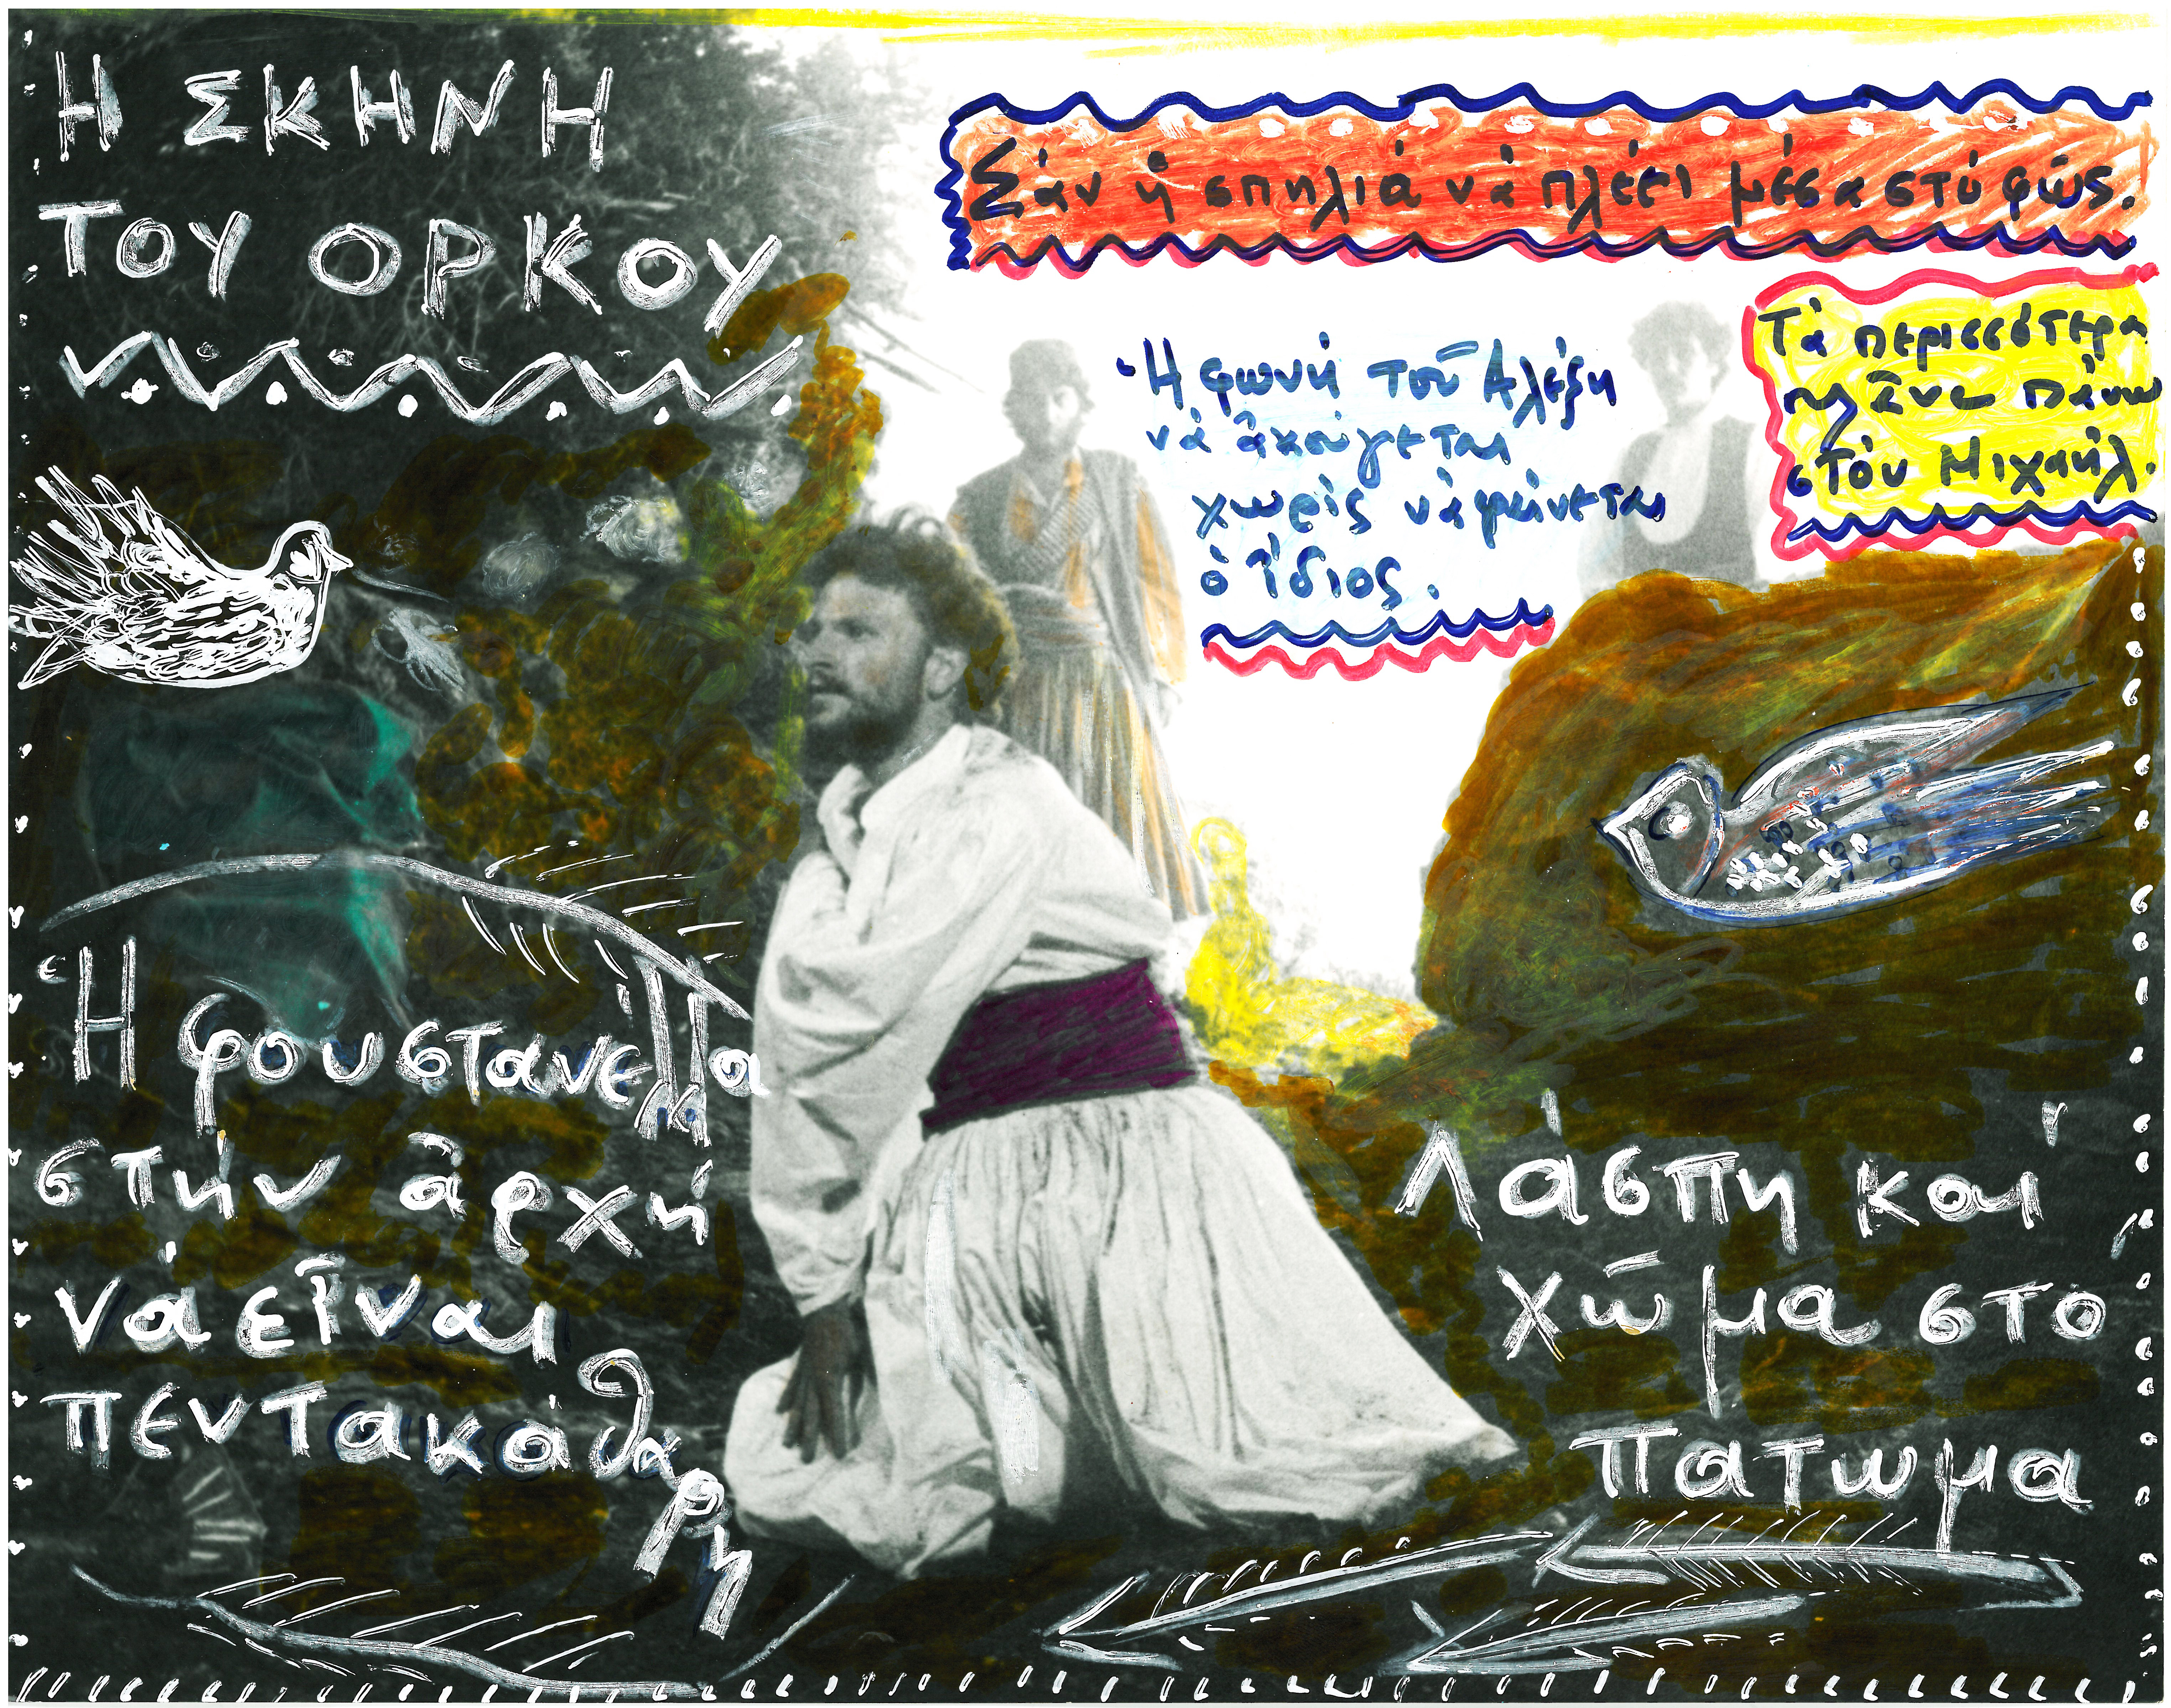 Η ΣΚΗΝΗ
ΤΟΥ ΟΡΚΟΥ
Σὰν ἡ σπηλιά νὰ πλέει μέσα στό φῶς.
Ἡ φωνή τοῦ Αλέξη
νά ἀκούγεται
χωρίς νά φαίνεται
ὁ ἴδιος.
Τὰ περισσότερα
πλᾶνα πάνω
στόν Μιχαήλ.
Ἡ φουστανέλλα
στήν ἀρχή
νά εἶναι
πεντακάθαρη
Λάσπη καί
χῶμα στό
πατωμα